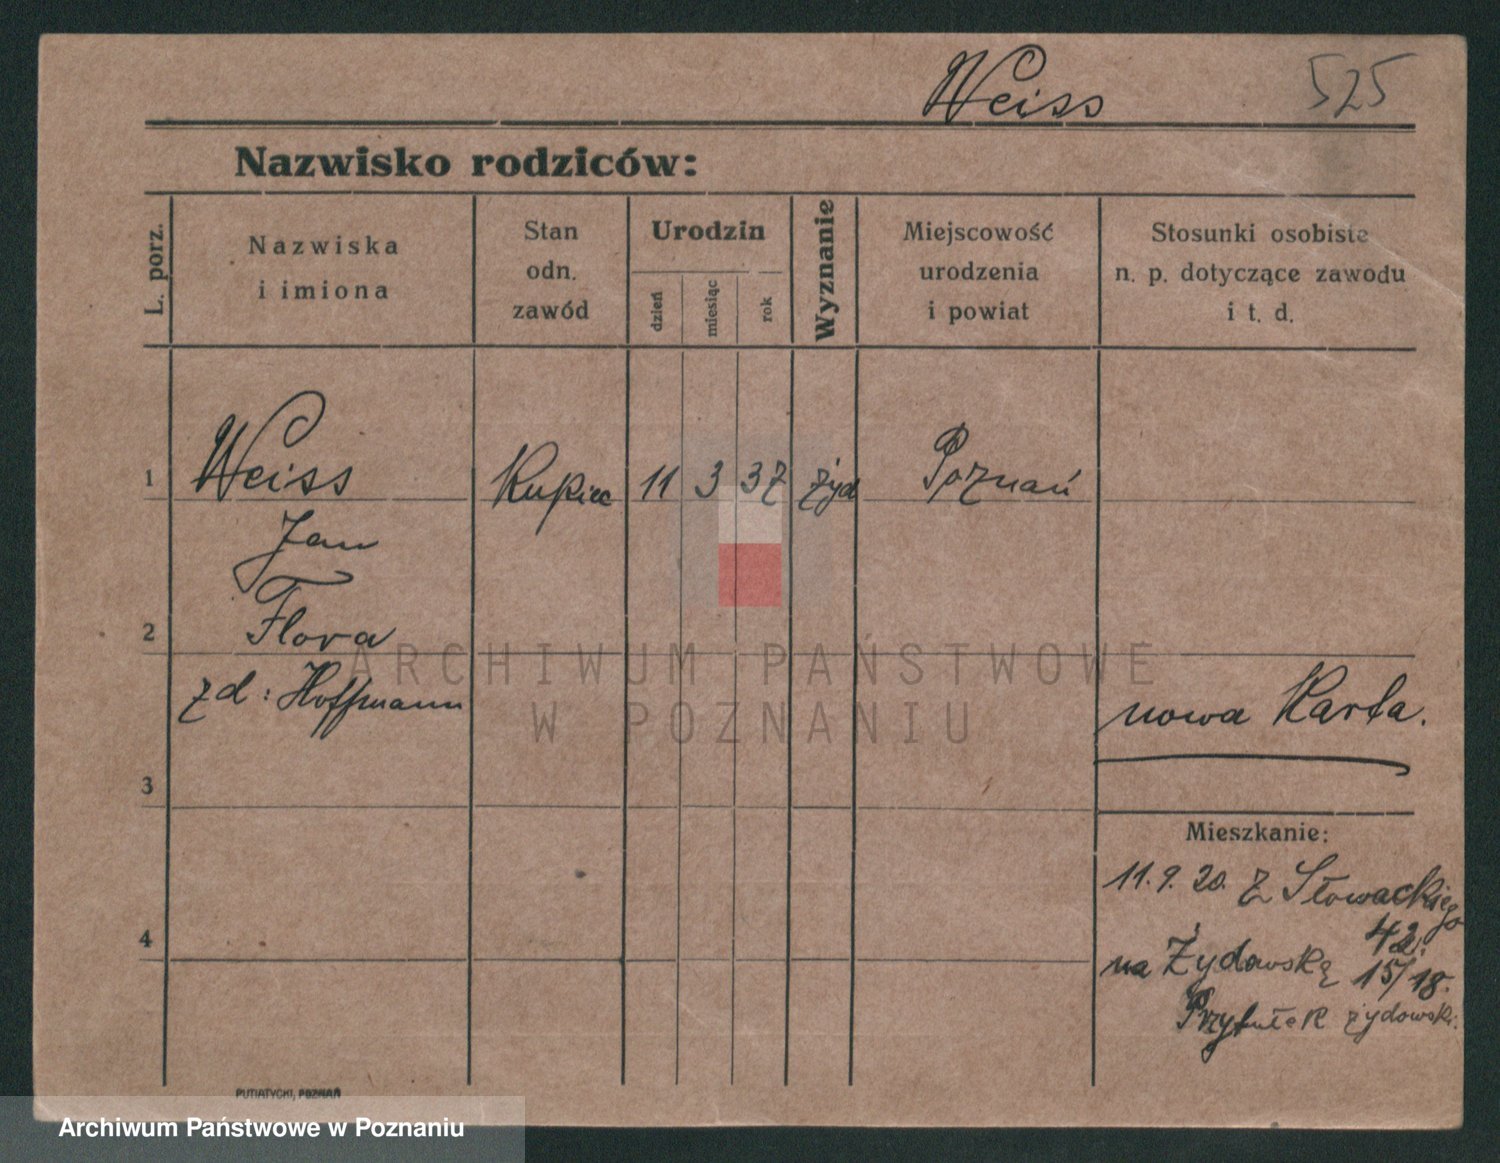 Weiss 525
Nazwisko rodziców:
L. porz.
Nazwiska
i imiona
Stan
odn.
zawód
Urodzin
dzień
miesiąc
rok
Wyznanie
Miejscowość
urodzenia
i powiat
Stosunki osobiste
n. p. dotyczące zawodu
i t. d.
1 Weiss Kupiec 11 3 37 żyd Poznań
Jan
2 Flora
zd: Hoffmann
nowa Karta.
3
Mieszkanie:
11. 9. 20. z Słowackiego
42.
4
na Żydowską 15/18.
Przytułek żydowski.
PUTIATYCKI, POZNAŃ
ARCHIWUM PAŃSTWOWE
W POZNANIU
Archiwum Państwowe w Poznaniu